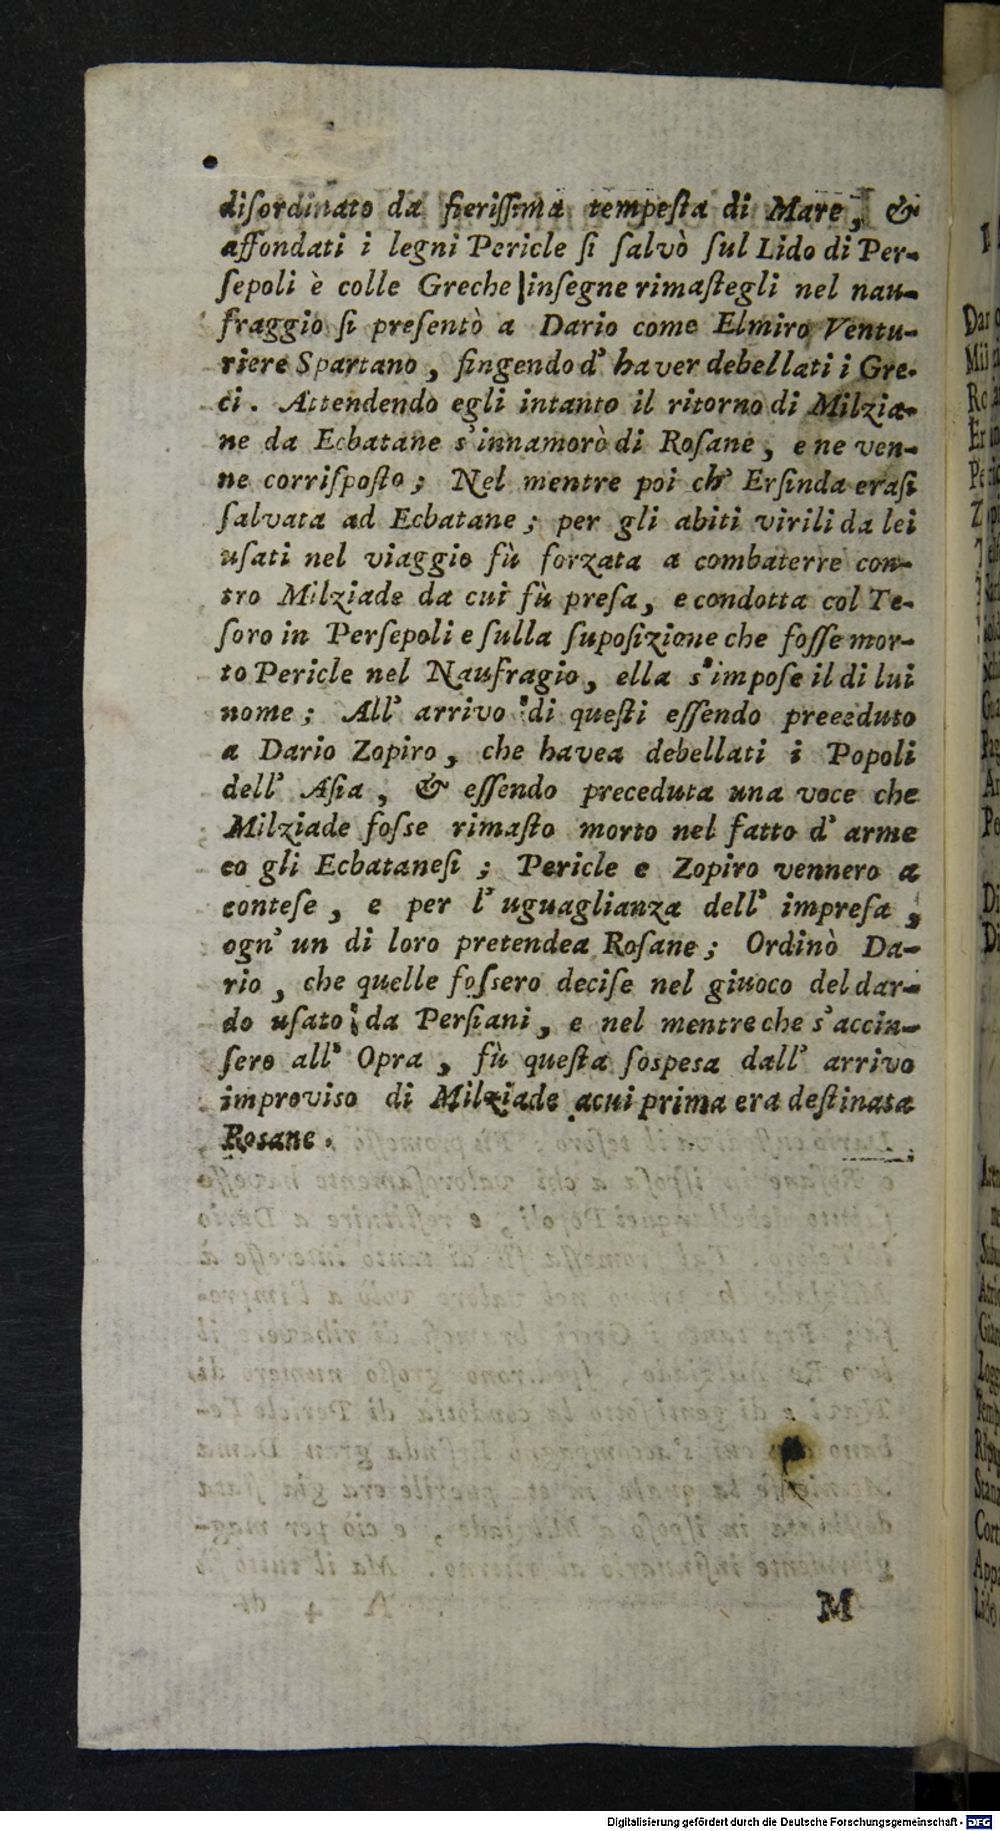 diſordinato da fieriſſima tempeſta di Mare, &
affondati i legni Pericle ſi ſalvò ſul Lido di Per-
ſepoli è colle Greche inſegne rimaſtegli nel nau-
fraggio ſi preſentò a Dario come Elmiro Ventu-
riere Spartano, fingendo d' haver debellati i Gre-
ci. Attendendo egli intanto il ritorno di Milzia-
ne da Ecbatane s'innamorò di Roſane, e ne ven-
ne corriſpoſto; Nel mentre poi ch' Erſinda eraſi
ſalvata ad Ecbatane; per gli abiti virili da lei
uſati nel viaggio fù forzata a combaterre con-
tro Milziade da cui fù preſa, e condotta col Te-
ſoro in Perſepoli e ſulla ſupoſizione che foſſe mor-
to Pericle nel Naufragio, ella s'impoſe il di lui
nome; All' arrivo di queſti eſſendo preceduto
a Dario Zopiro, che havea debellati i Popoli
dell' Aſia, & eſſendo preceduta una voce che
Milziade foſse rimaſto morto nel fatto d' arme
co gli Ecbataneſi; Pericle e Zopiro vennero a
conteſe, e per l' uguaglianza dell' impreſa,
ogn' un di loro pretendea Roſane; Ordinò Da-
rio, che quelle foſsero deciſe nel giuoco del dar-
do uſato da Perſiani, e nel mentre che s'accin-
ſero all' Opra, fù queſta ſospesa dall' arrivo
improviso di Milziade acui prima era deſtinata
Rosane.
M
Digitalisierung gefördert durch die Deutsche Forschungsgemeinschaft - DFG